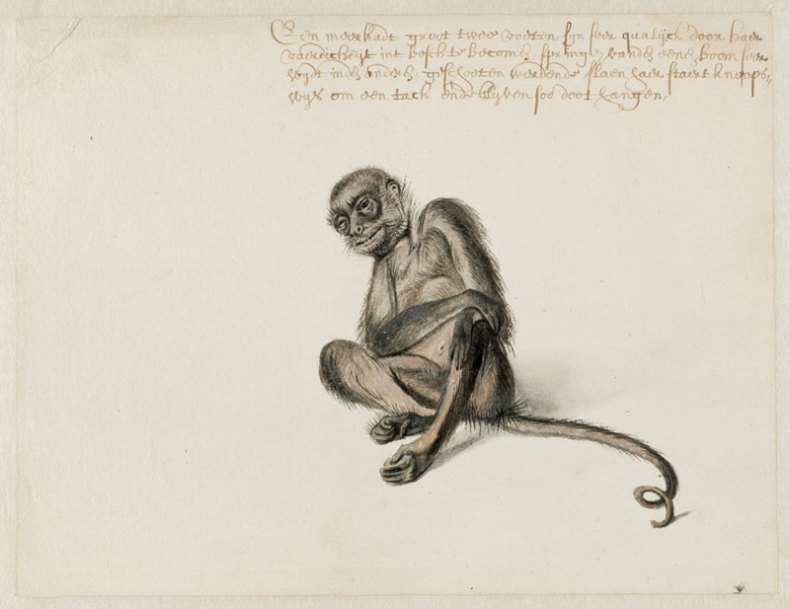 Een meerkadt groot twee voeten, syn seer qualijck door haer
vaerdicheyt int bosch te becomen, springen vanden eenen boom seer
wydt inden anderen, geschooten werdende slaen haer staert knoops,,
wijs om een tack ende blijven soo doot hangen,